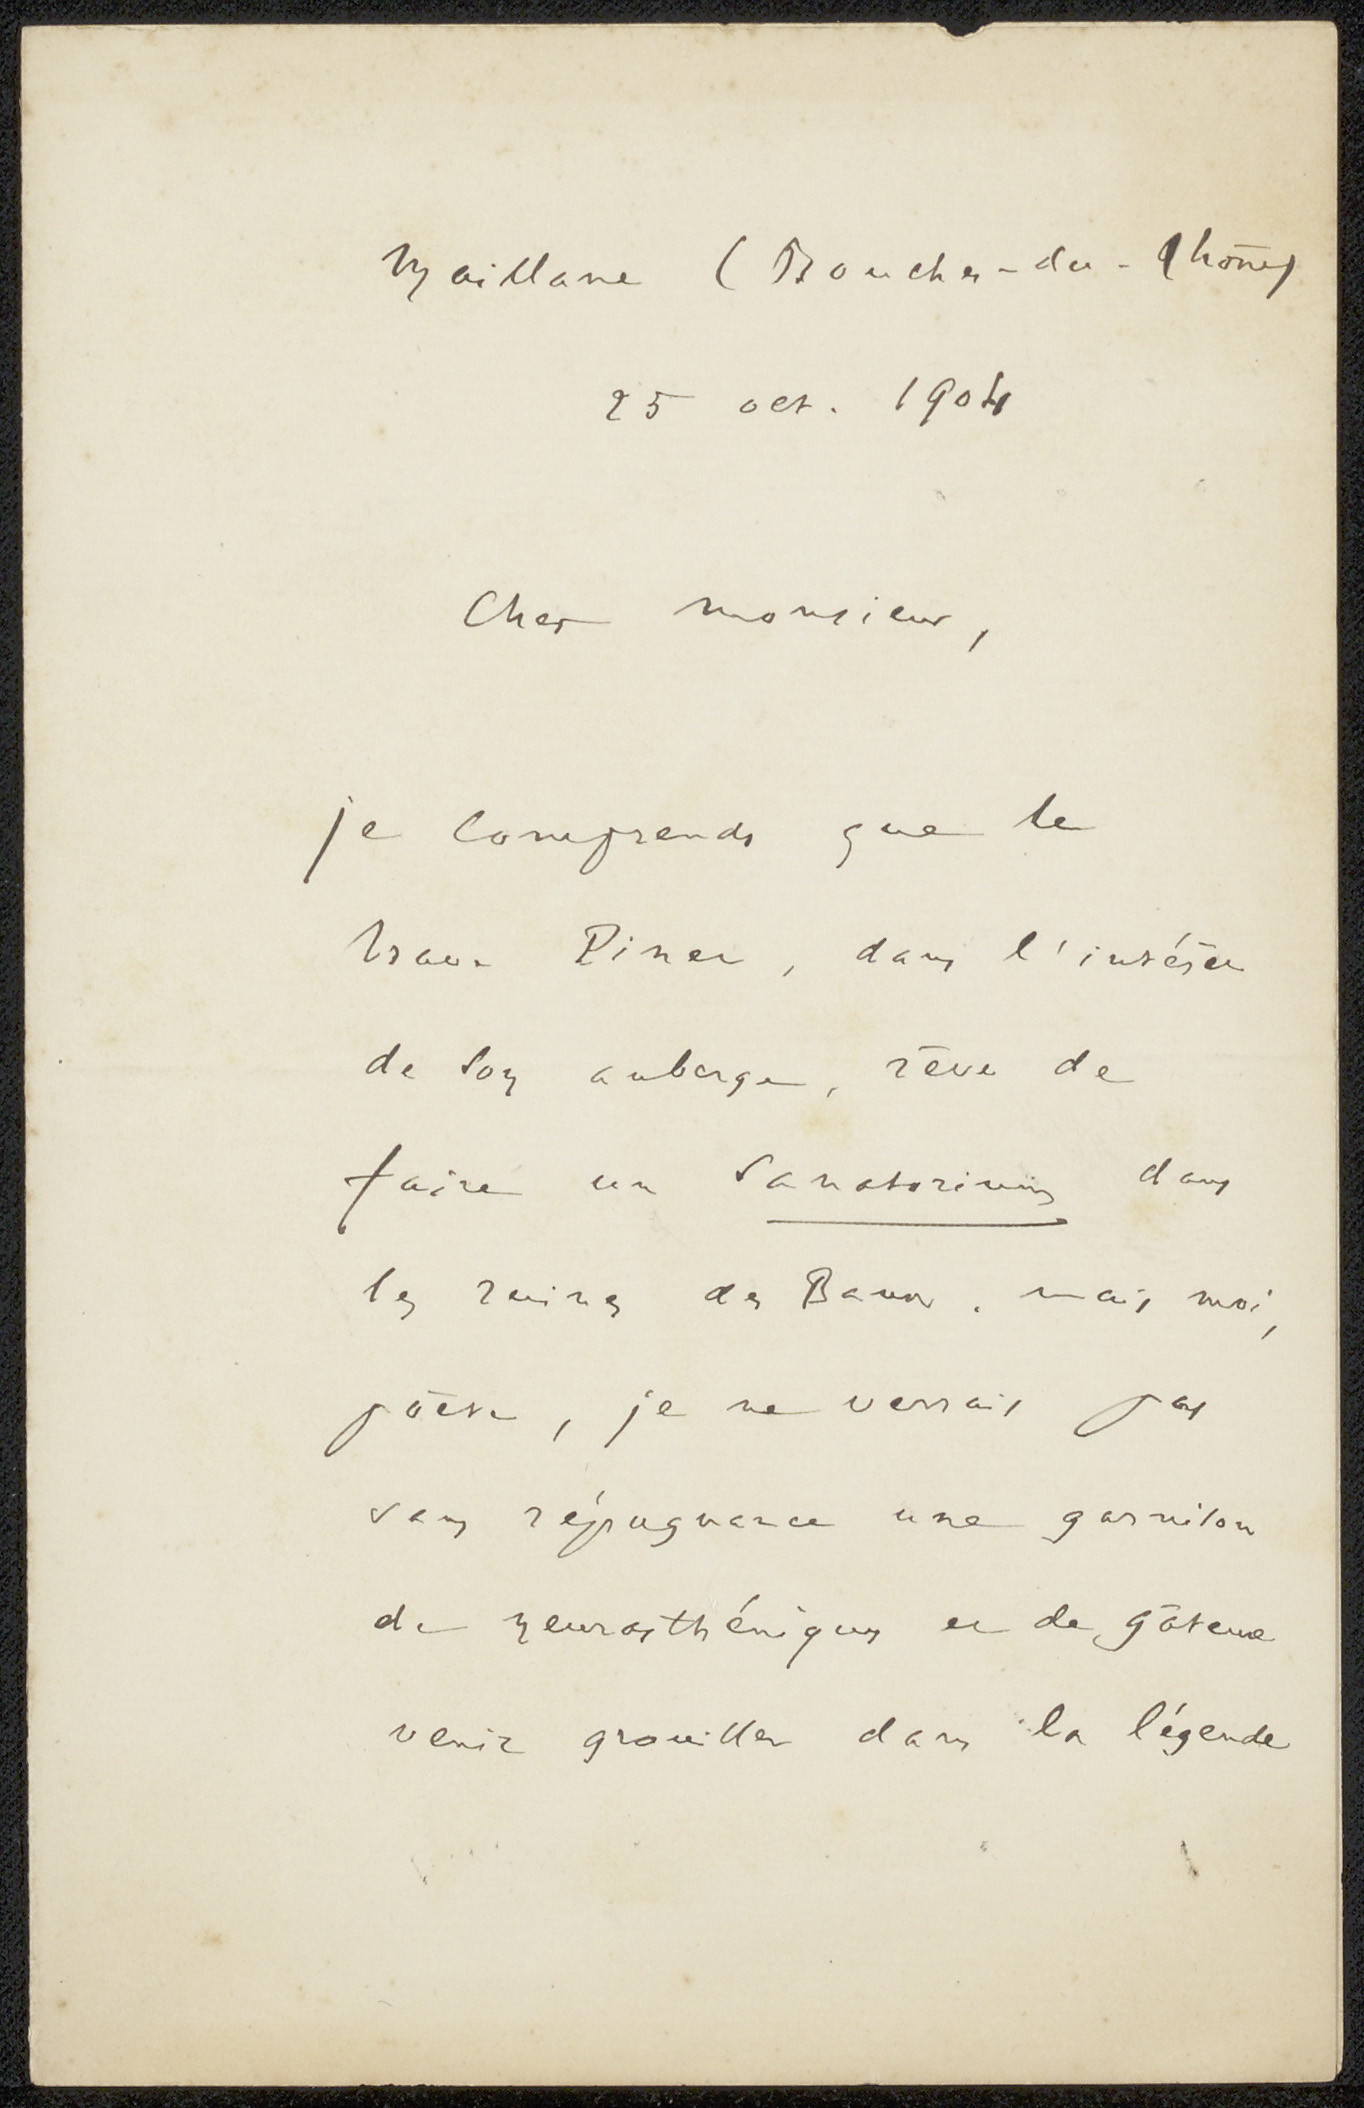 Maillane (Bouches-du-Rhône)
25 oct. 1904
Cher monsieur,
je comprends que le
brave Pinet, dans l'intérêt
de son auberge, rêve de
faire un Sanatorium dans
les ruines des Baux. mais moi,
poète, je ne verrais pas
sans répugnance une garnison
de neurasthéniques et de gâteux
venir grouiller dans la légende